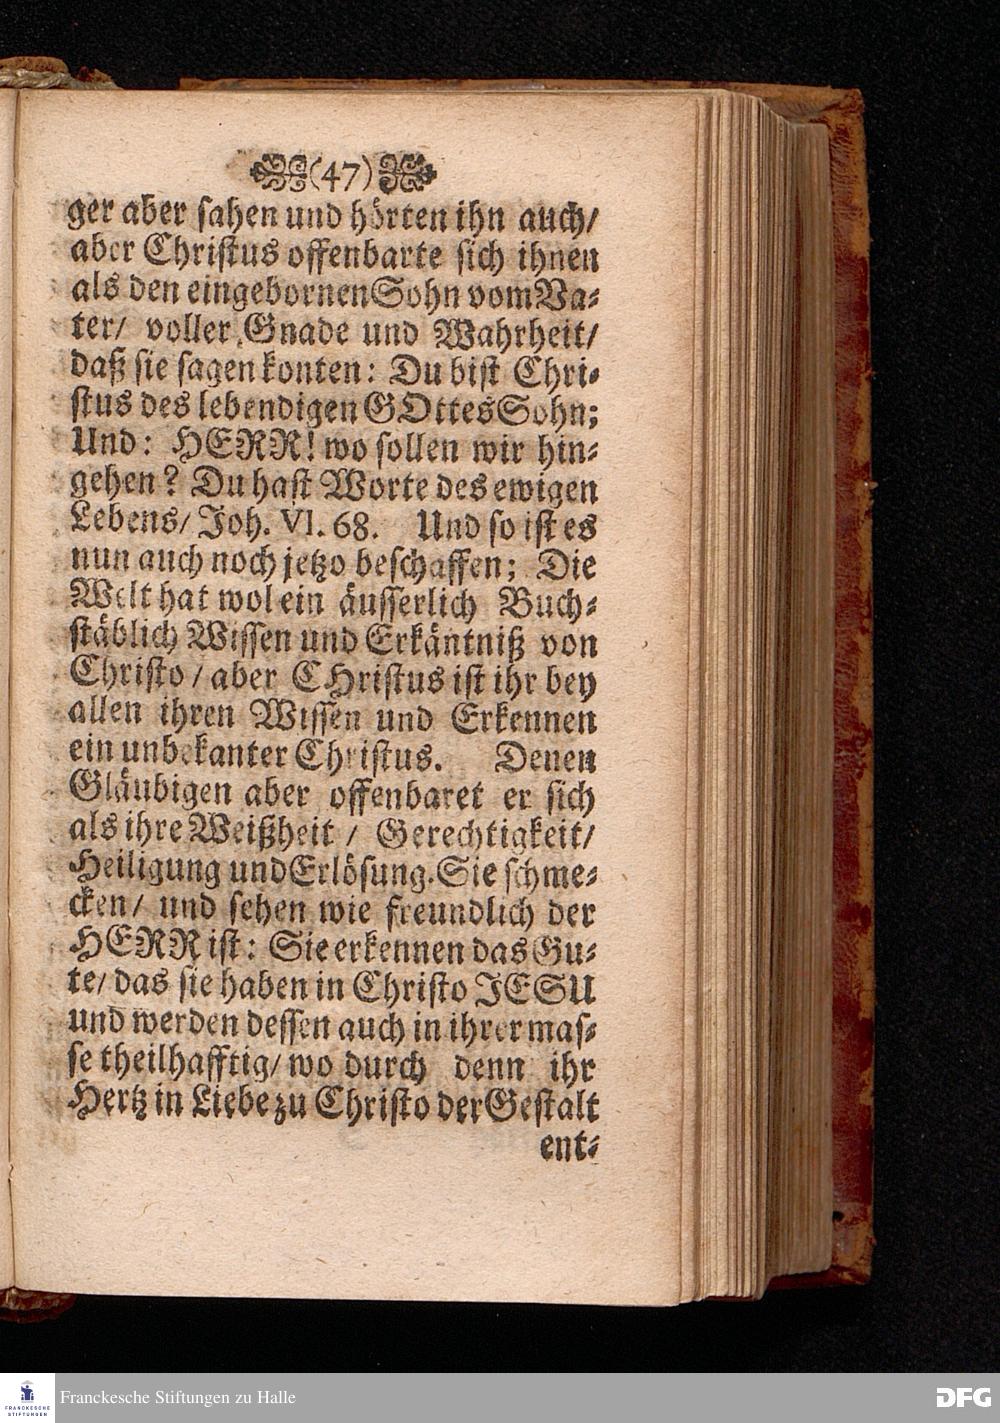 (47)
ger aber sahen und hörten ihn auch/
aber Christus offenbarte sich ihnen
als den eingebornen Sohn vom Va-
ter/ voller Gnade und Wahrheit/
daß sie sagen konten: Du bist Chri-
stus des lebendigen GOttes Sohn;
Und: HERR! wo sollen wir hin-
gehen? Du hast Worte des ewigen
Lebens/ Joh. VI. 68. Und so ist es
nun auch noch jetzo beschaffen; Die
Welt hat wol ein äusserlich Buch-
stäblich Wissen und Erkäntniß von
Christo / aber CHristus ist ihr bey
allen ihren Wissen und Erkennen
ein unbekanter Christus. Denen
Gläubigen aber offenbaret er sich
als ihre Weißheit / Gerechtigkeit/
Heiligung und Erlösung. Sie schme-
cken/ und sehen wie freundlich der
HERR ist: Sie erkennen das Gu-
te/ das sie haben in Christo JESU
und werden dessen auch in ihrer mas-
se theilhafftig/ wo durch denn ihr
Hertz in Liebe zu Christo der Gestalt
ent-
FRANCKESCHE
STIFTUNGEN
Franckesche Stiftungen zu Halle
DFG